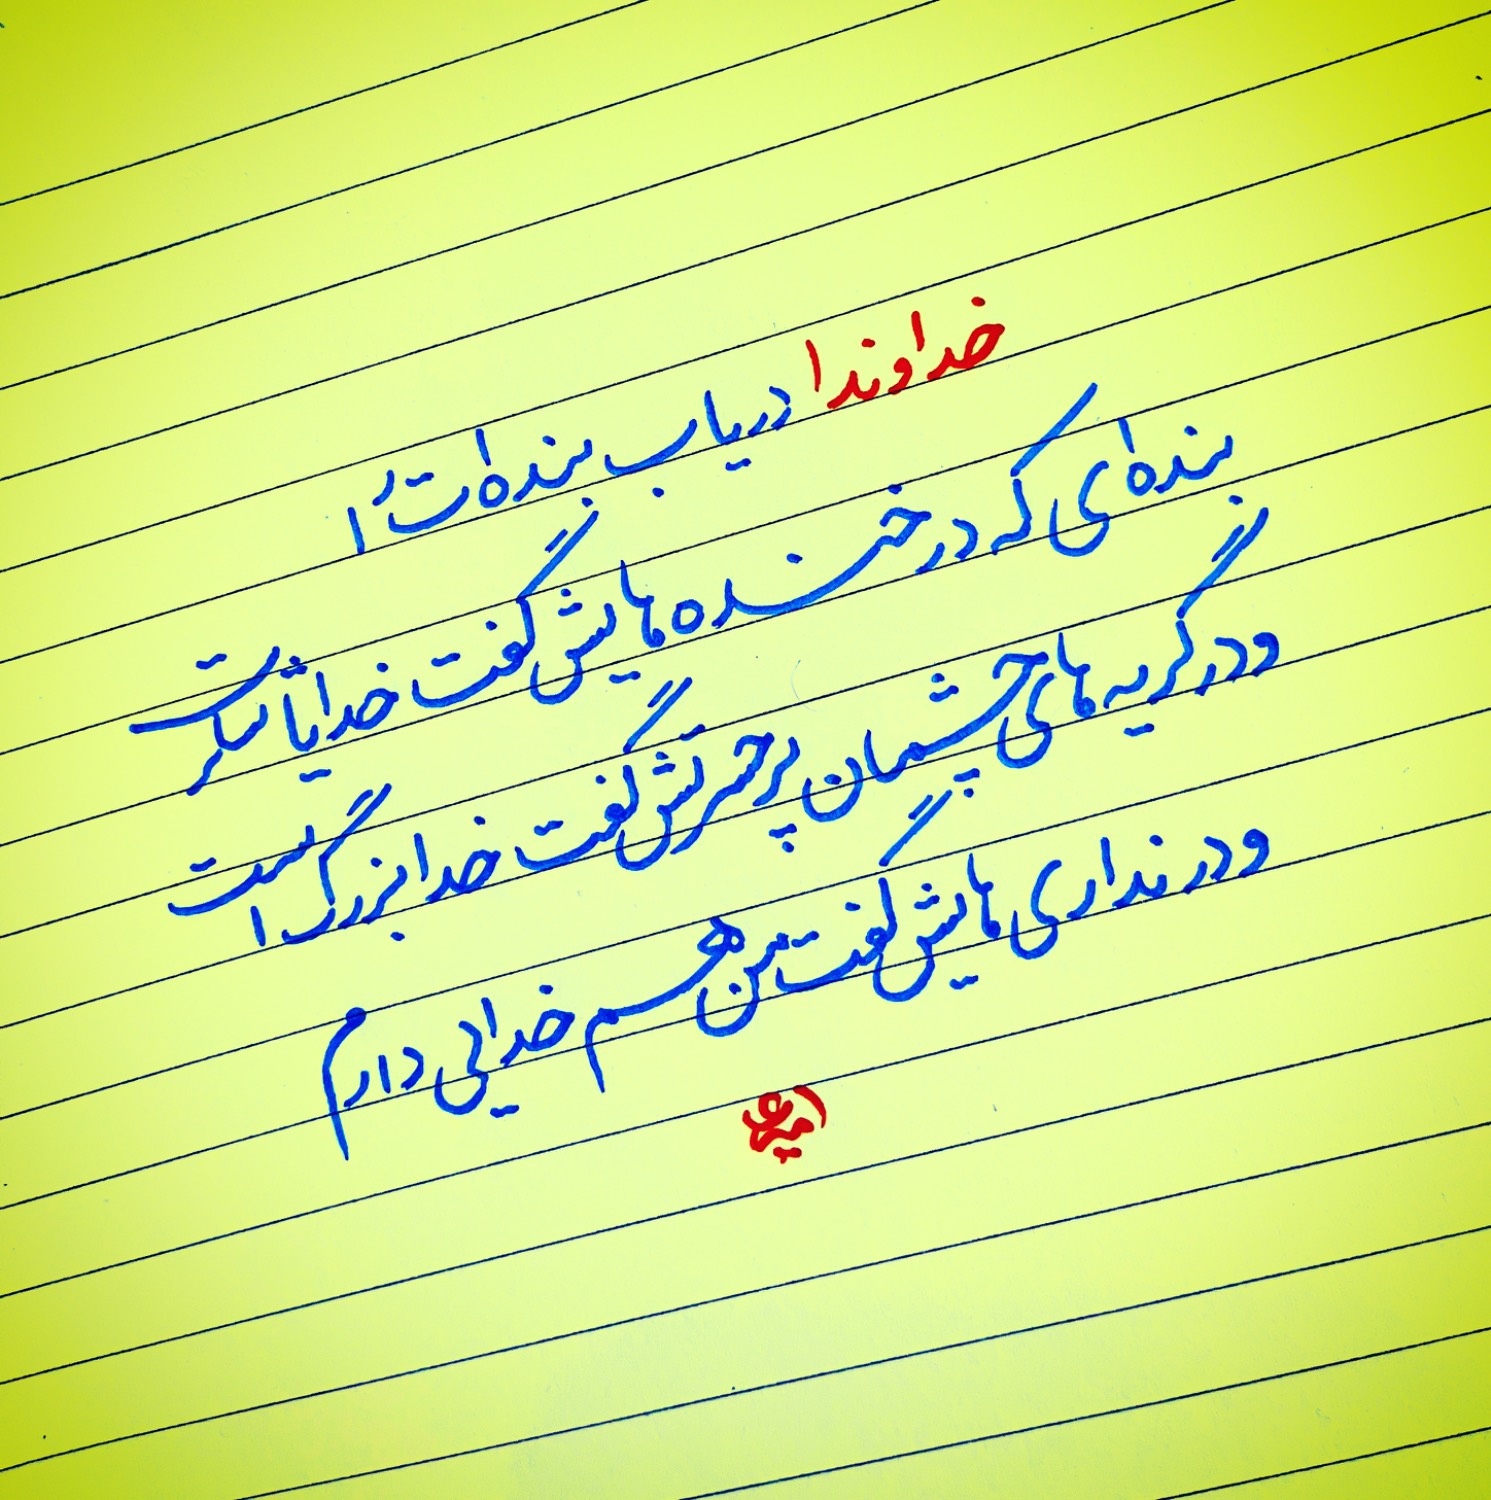 خداوندا دریاب بنده‌ات را
بنده‌ای که در خنده هایش گفت خدایا شکرت
و در گریه های چشمان پرحسرتش گفت خدا بزرگ است
و در نداری هایش گفت من هم خدایی دارم